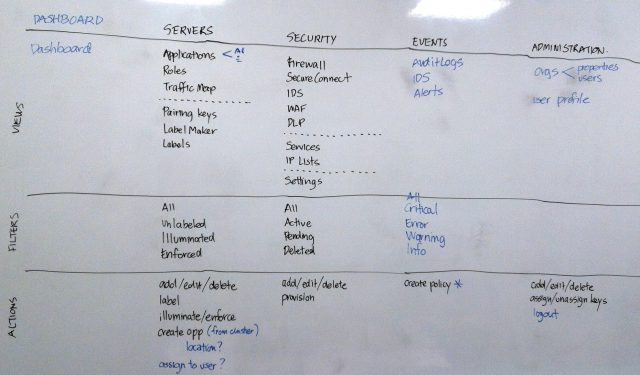 DASHBOARD
SERVERS
SECURITY
EVENTS
ADMINISTRATION
VIEWS
Dashboard
Applications < A1
2
Roles
Traffic Map
Pairing keys
Label Maker
Labels
Firewall
SecureConnect
IDS
WAF
DLP
Services
IP Lists
Settings
Audit Logs
IDS
Alerts
orgs < properties
users
user profile
FILTERS
All
Unlabeled
Illuminated
Enforced
All
Active
Pending
Deleted
All
Critical
Error
Warning
Info
ACTIONS
add/edit/delete
label
illuminate/enforce
create app (from cluster)
location?
assign to user?
add/edit/delete
provision
create policy *
add/edit/delete
assign/unassign keys
logout